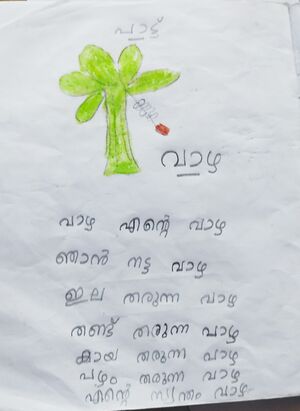 പാട്ട്
വാഴ
വാഴ എന്റെ വാഴ
ഞാൻ നട്ട വാഴ
ഇല തരുന്ന വാഴ
തണ്ട് തരുന്ന വാഴ
കായ തരുന്ന വാഴ
പഴം തരുന്ന വാഴ
എന്റെ സ്വന്തം വാഴ